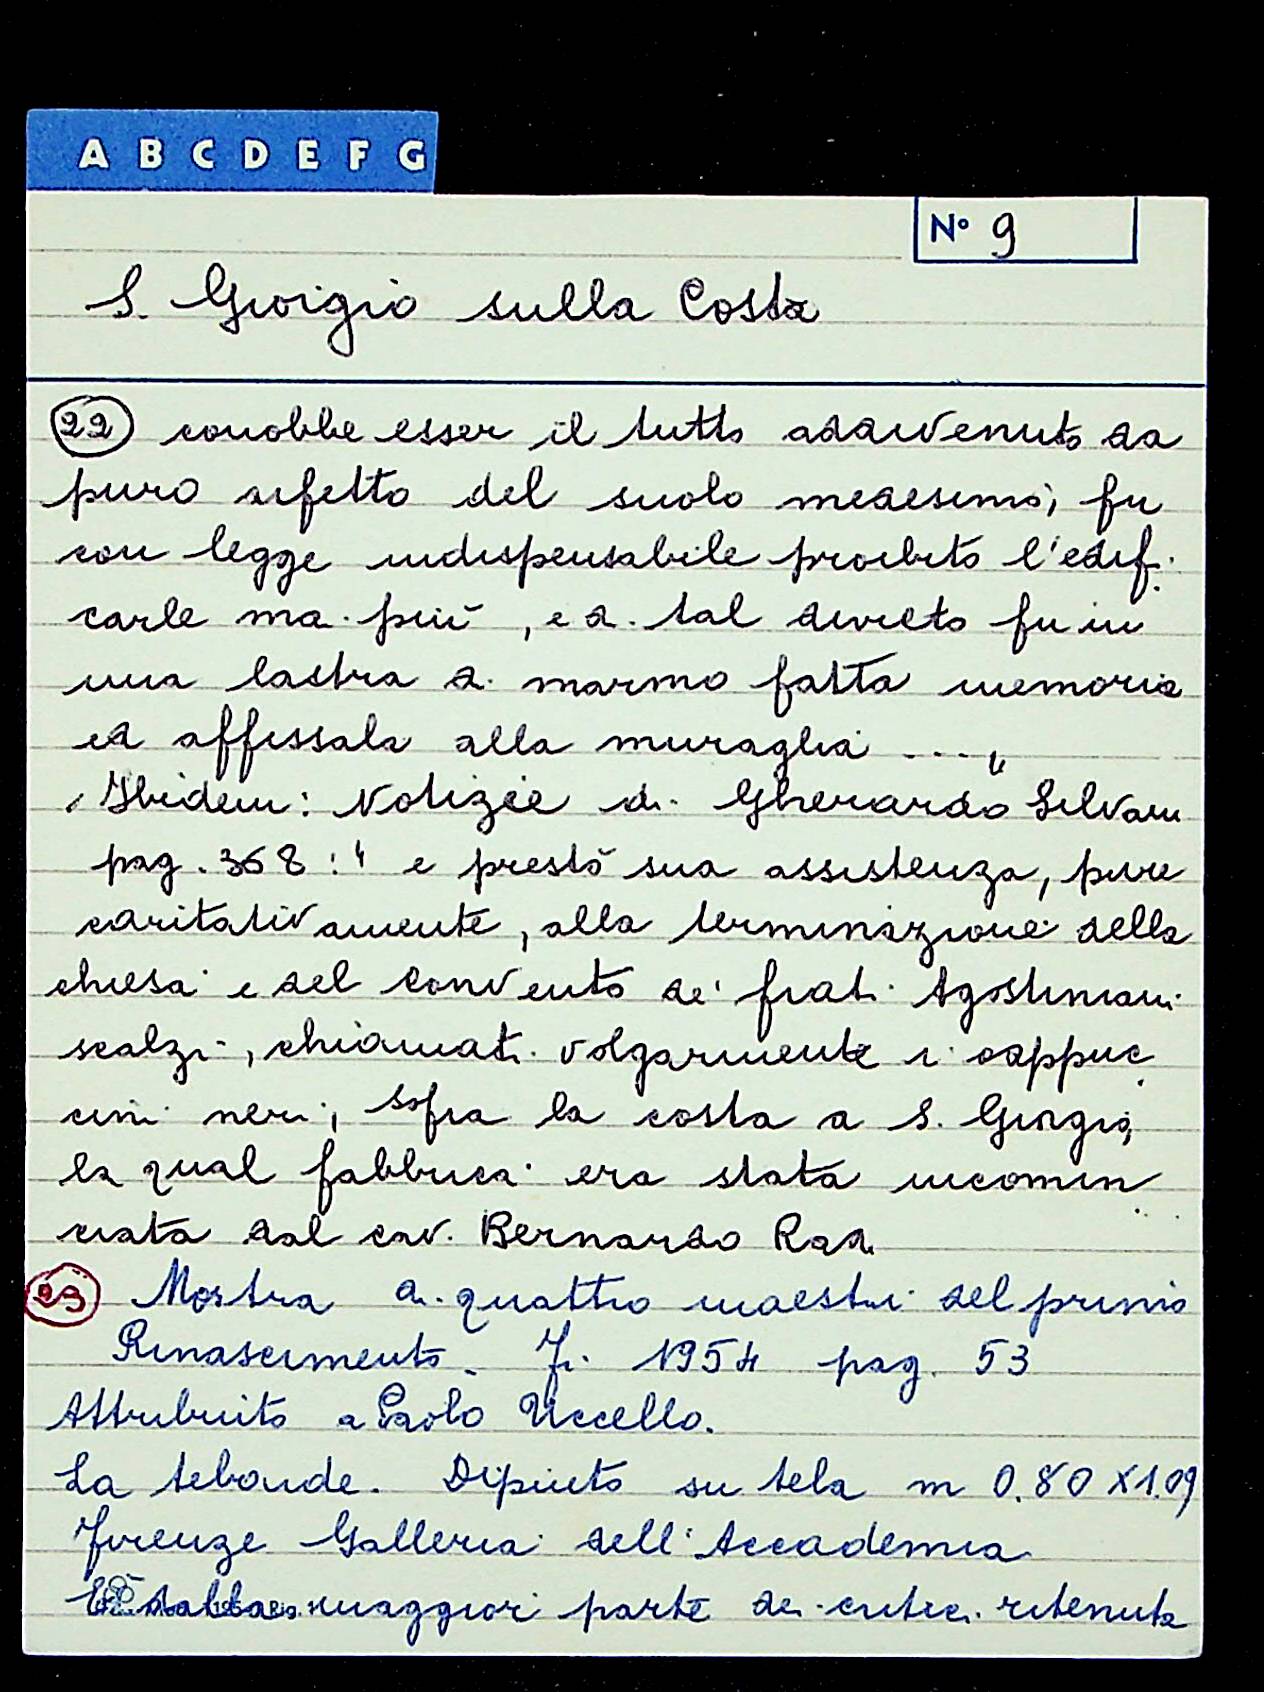 A B C D E F G
N° 9
S. Giorgio sulla Costa
22 conobbe esser il tutto addivenuto da
puro difetto del suolo medesimo; fu
con legge indispensabile proibito l'edif.
carle mai più, e di tal divieto fu in
una lastra di marmo fatta memoria
ed affissala alla muraglia ... "
Ibidem: Notizie di Gherardo Silvani
pag. 368: " e prestò sua assistenza, pure
caritativamente, alla terminazione della
chiesa e del convento de' frati Agostiniani
scalzi, chiamati volgarmente i cappuc
cini neri, sopra la costa a S. Giorgio,
la qual fabbrica era stata incomin
ciata dal cav. Bernardo Radi
23 Mostra di quattro maestri del primo
Rinascimento. Fi. 1954 pag. 53
Attribuito a Paolo Uccello.
La tebaide. Dipinto su tela m 0.80 X 1.09
Firenze Galleria dell'Accademia
dalla maggior parte dei critici ritenuta